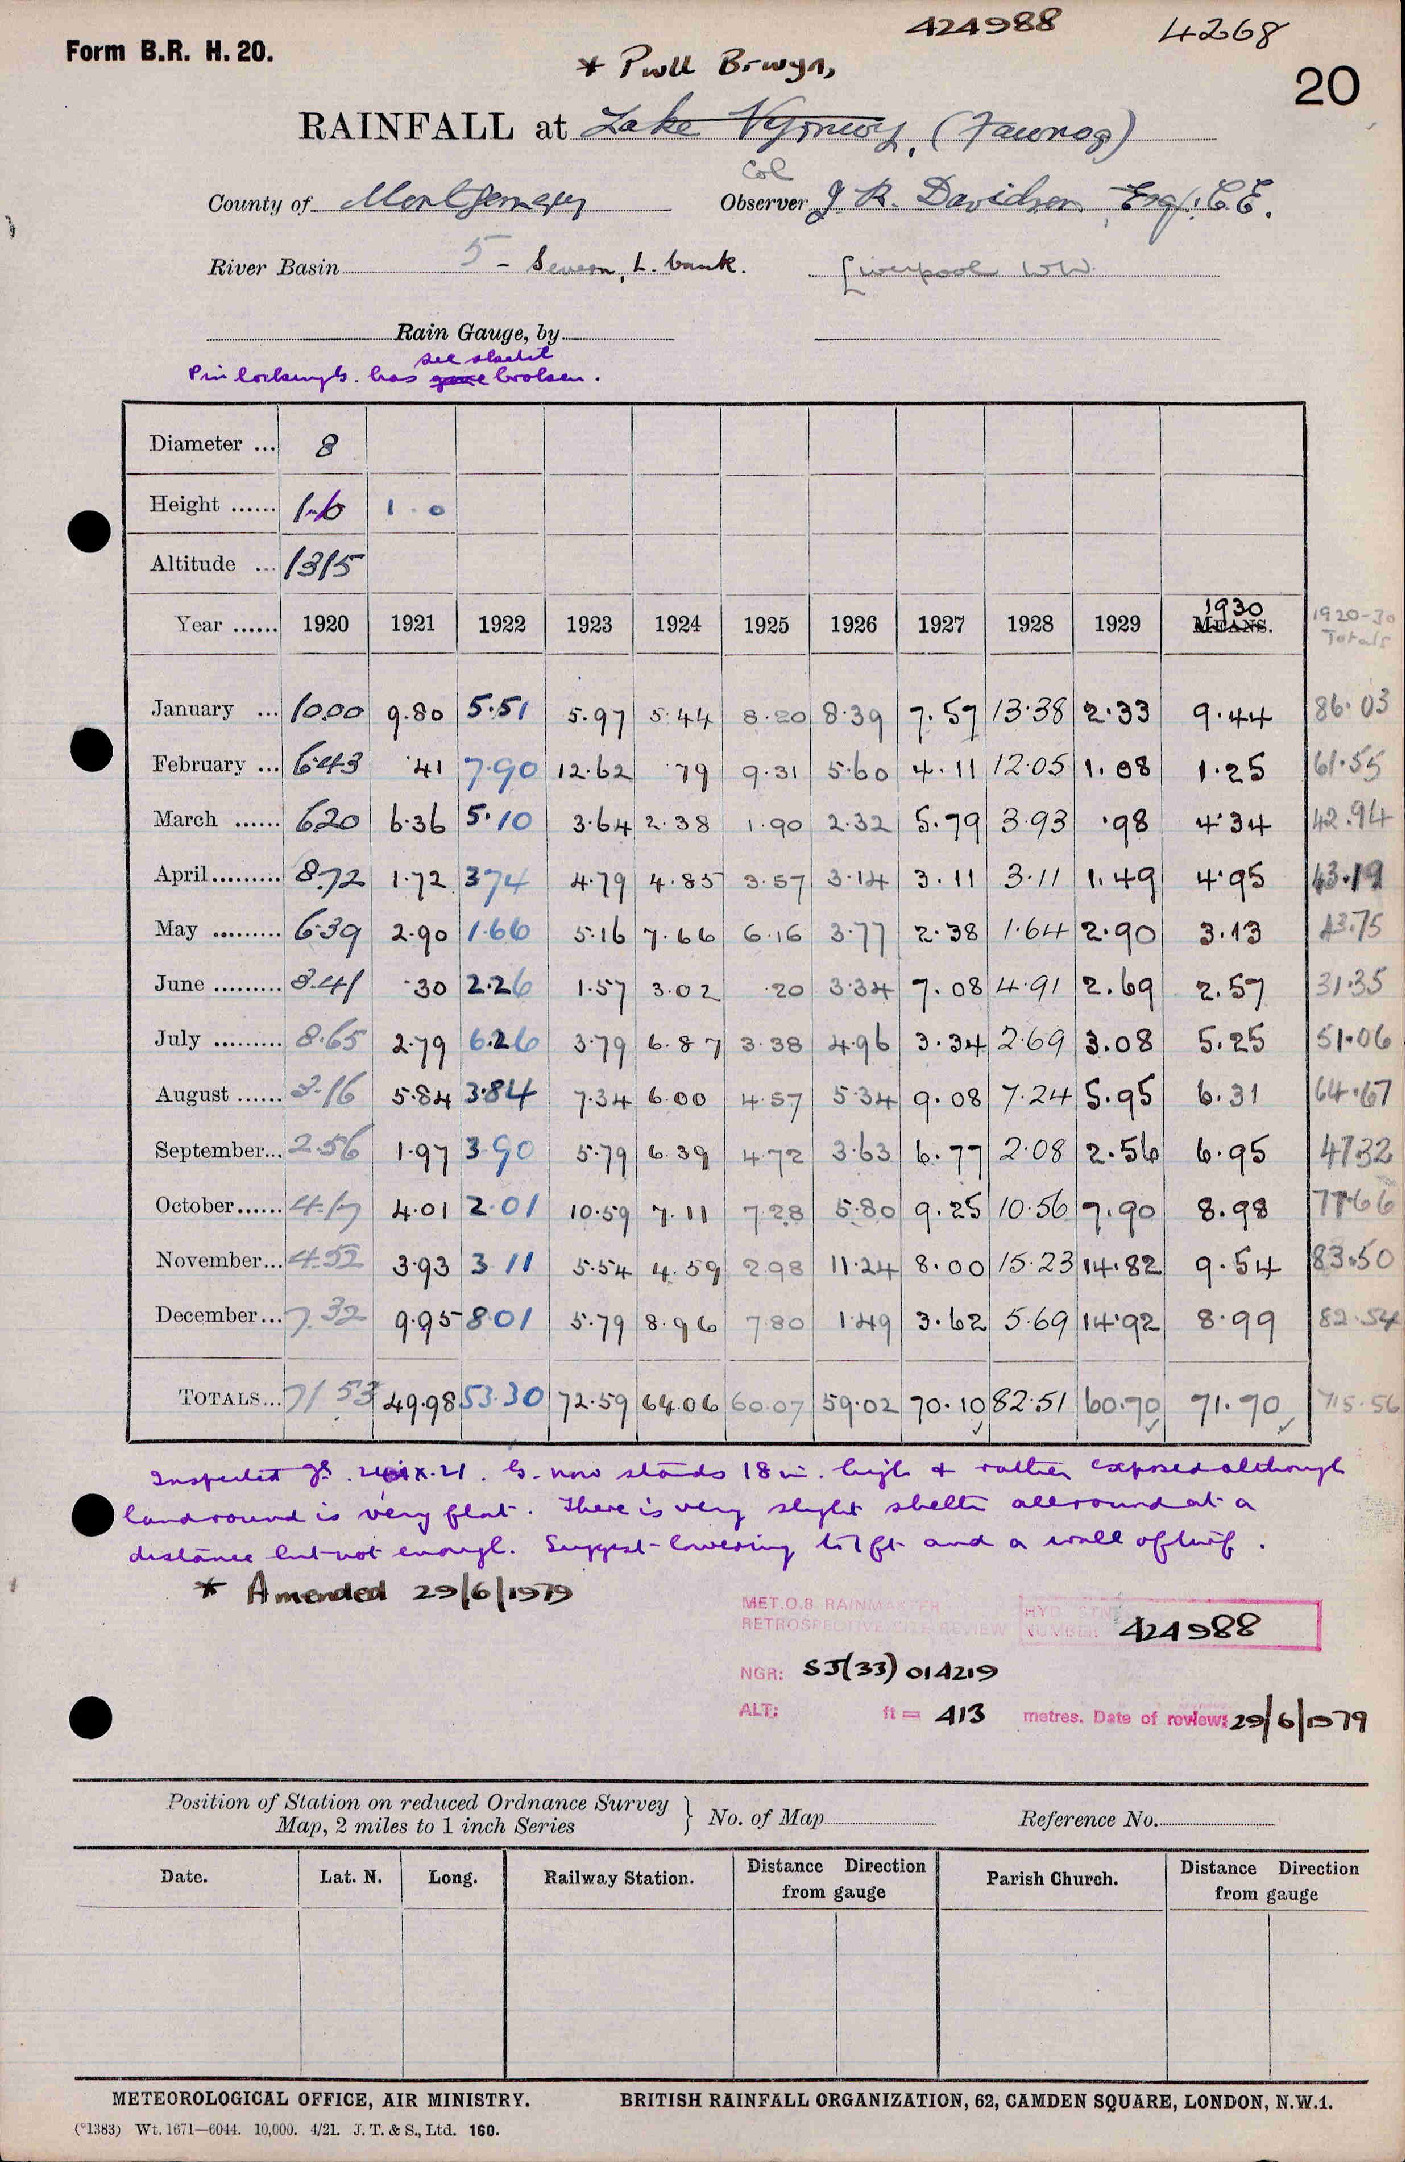 424988 4268
Form B.R. H. 20.
* Pwll Brwyn,
20
RAINFALL at Lake Vyrnwy, (Fawnog)
Col
County of Montgomery Observer J. R. Davidson, Esq., C.E.
River Basin 5 - Severn, L. bank. Liverpool WW
Rain Gauge, by
see whether
Pin has gave broken.
Diameter ... 8
Height ...... 1-6 1 . 0
Altitude ... 1315
Year ...... 1920 1921 1922 1923 1924 1925 1926 1927 1928 1929 1930 MEANS. 1920-30 Totals
January ... 10.00 9.80 5.51 5.97 5.44 8.20 8.39 7.57 13.38 2.33 9.44 86.03
February ... 6.43 .41 7.90 12.62 .79 9.31 5.60 4.11 12.05 1.08 1.25 61.55
March ...... 6.20 6.36 5.10 3.64 2.38 1.90 2.32 5.79 3.93 .98 4.34 42.94
April ......... 8.72 1.72 3.74 4.79 4.85 3.57 3.14 3.11 3.11 1.49 4.95 43.19
May ......... 6.39 2.90 1.66 5.16 7.66 6.16 3.77 2.38 1.64 2.90 3.13 43.75
June ......... 3.41 .30 2.26 1.57 3.02 .20 3.34 7.08 4.91 2.69 2.57 31.35
July ......... 8.65 2.79 6.26 3.79 6.87 3.38 4.96 3.34 2.69 3.08 5.25 51.06
August ...... 3.16 5.84 3.84 7.34 6.00 4.57 5.34 9.08 7.24 5.95 6.31 64.67
September... 2.56 1.97 3.90 5.79 6.39 4.72 3.63 6.77 2.08 2.56 6.95 47.32
October...... 4.17 4.01 2.01 10.59 7.11 7.28 5.80 9.25 10.56 7.90 8.98 77.66
November... 4.52 3.93 3.11 5.54 4.59 2.98 11.24 8.00 15.23 14.82 9.54 83.50
December... 7.32 9.95 8.01 5.79 8.96 7.80 1.49 3.62 5.69 14.92 8.99 82.54
TOTALS... 71.53 49.98 53.30 72.59 64.06 60.07 59.02 70.10 82.51 60.70 71.70 715.56
Inspected . IX.21. G. now stands 18 in. high & rather exposed although
land round is very flat. There is very slight shelter all round at a
distance but not enough. Suggest lowering to 1 ft and a wall of turf.
* Amended 29/6/1979
MET.O.8 RAINMASTER
RETROSPECTIVE SITE REVIEW HYD. STN. NUMBER: 424988
NGR: SJ(33) 014219
ALT: ft = 413 metres. Date of review: 29/6/1979
Position of Station on reduced Ordnance Survey
Map, 2 miles to 1 inch Series } No. of Map Reference No.
Date. Lat. N. Long. Railway Station. Distance Direction from gauge Parish Church. Distance Direction from gauge
METEOROLOGICAL OFFICE, AIR MINISTRY. BRITISH RAINFALL ORGANIZATION, 62, CAMDEN SQUARE, LONDON, N.W.1.
(*1383) Wt. 1671—6044. 10,000. 4/21. J. T. & S., Ltd. 160.